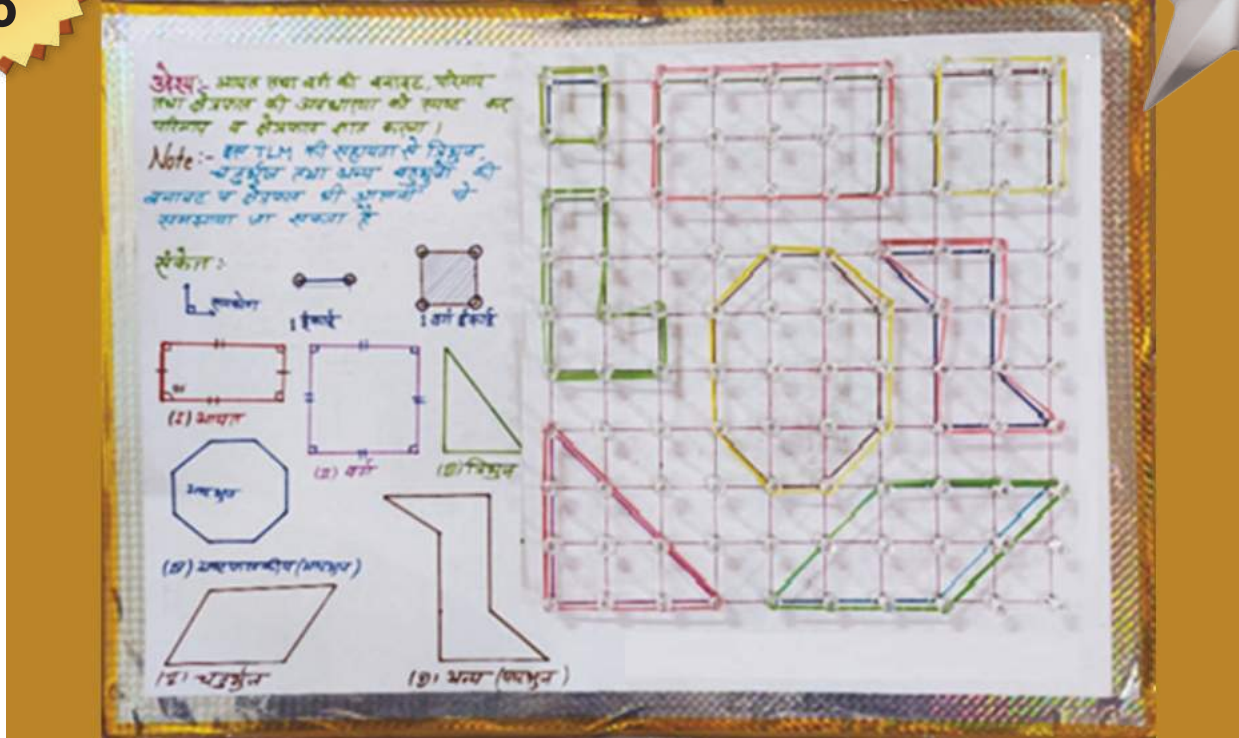 उद्देश्य:- आयत तथा वर्ग की बनावट, परिमाप
तथा क्षेत्रफल की अवधारणा को स्पष्ट कर
परिमाप व क्षेत्रफल ज्ञात करना।
Note:- इस TLM की सहायता से त्रिभुज,
चतुर्भुज तथा अन्य बहुभुजों की
बनावट व क्षेत्रफल भी आसानी से
समझाया जा सकता है
संकेत:-
समकोण
1 ईकाई
1 वर्ग ईकाई
(I) आयत
(2) वर्ग
(3) त्रिभुज
चतुर्भुज
अन्य